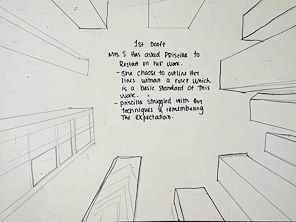 1st Draft
Mrs. S Has asked Priscilla to
Restart on her work.
- She choose to outline Her
lines without a ruler which
is a basic standard of this
work.
- Priscilla struggled with this
techniques & remembering
The expectation.